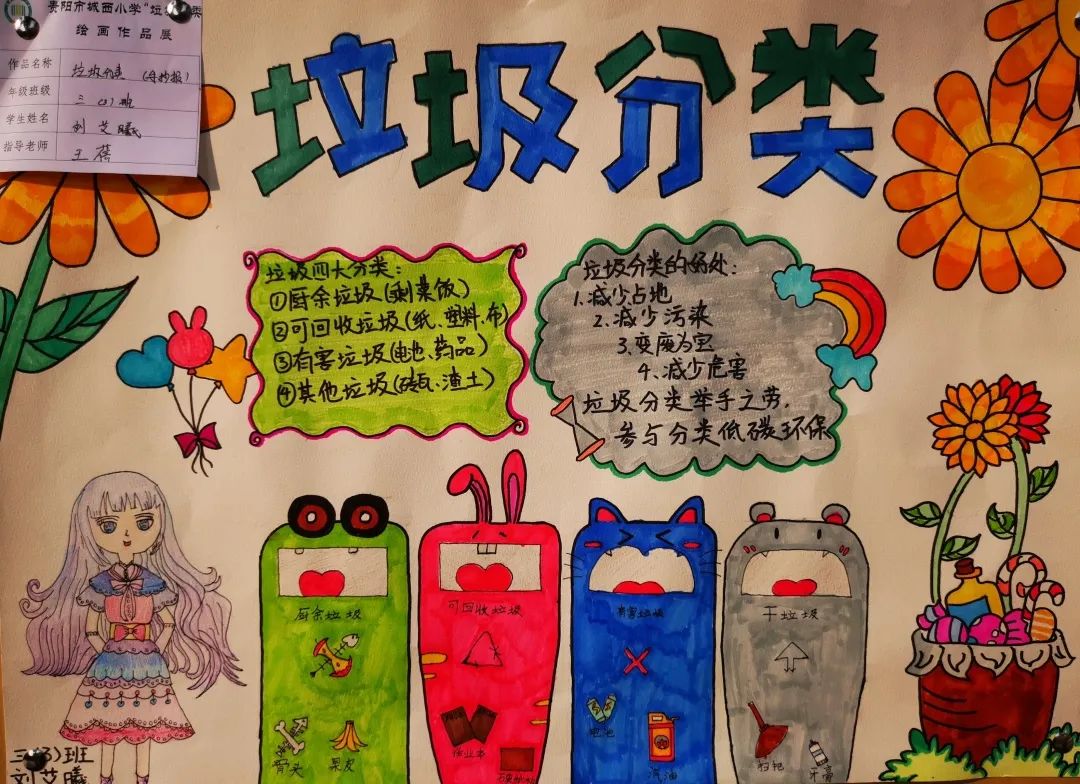 贵阳市城西小学"垃圾分类
绘画作品展
作品名称 垃圾分类 (手抄报)
年级班级 三 (3) 班
学生姓名 刘艾曦
指导老师 王蓓
垃圾分类
垃圾四大分类:
①厨余垃圾(剩菜饭)
②可回收垃圾(纸、塑料、布)
③有害垃圾(电池、药品)
④其他垃圾(砖瓦、渣土)
垃圾分类的好处:
1.减少占地
2、减少污染
3、变废为宝
4、减少危害
垃圾分类举手之劳,
参与分类低碳环保
厨余垃圾
可回收垃圾
有害垃圾
干垃圾
骨头
果皮
作业本
电池
汽油
扫把
牙膏
三(3)班
刘艾曦